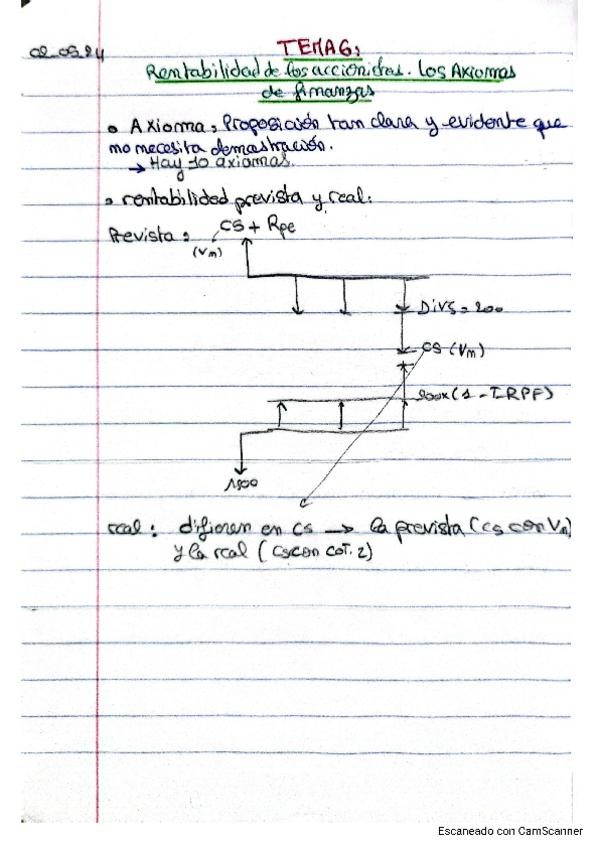 02-05-24
TEMA6:
Rentabilidad de los accionistas. Los Axiomas
de finanzas
• Axioma: Proposición tan clara y evidente que
no necesita demostración.
→ Hay 10 axiomas.
• rentabilidad prevista y real:
Prevista: CS + Rpe
(Vm)
DIVS = 200
CS (Vm)
200x(1-IRPF)
1800
C
real: difieren en CS → la prevista (CS con Vm)
y la real (CS con COT. 2)
Escaneado con CamScanner